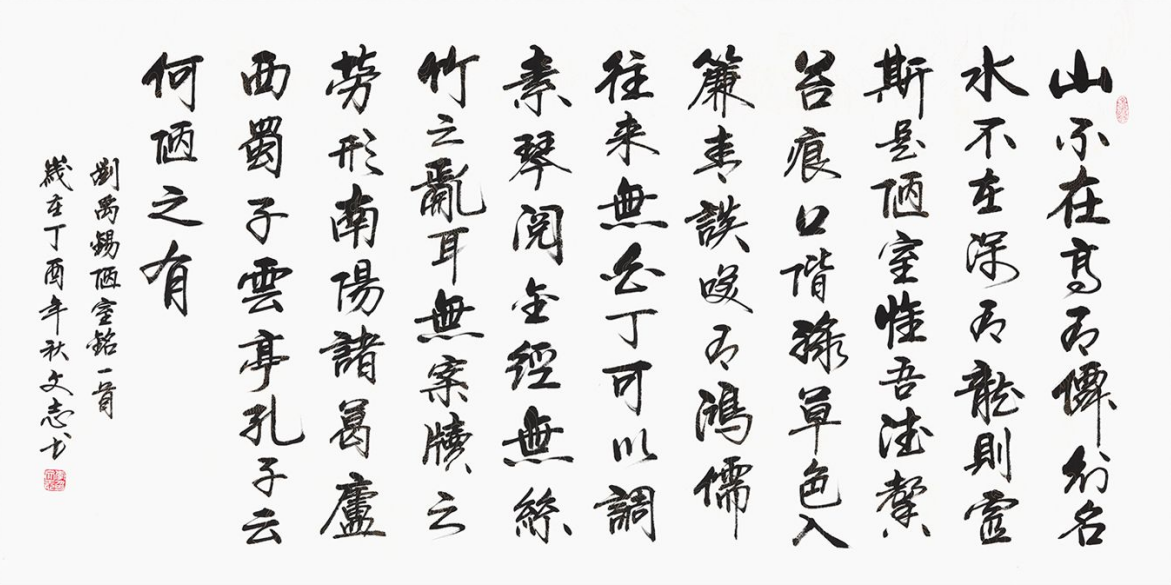 山不在高有僊則名
水不在深有龍則靈
斯是陋室惟吾德馨
苔痕口階綠草色入
簾青談笑有鴻儒
往來無白丁可以調
素琴閱金經無絲
竹之亂耳無案牘之
勞形南陽諸葛廬
西蜀子雲亭孔子云
何陋之有
劉禹錫陋室銘一首
歲在丁酉年秋文志书